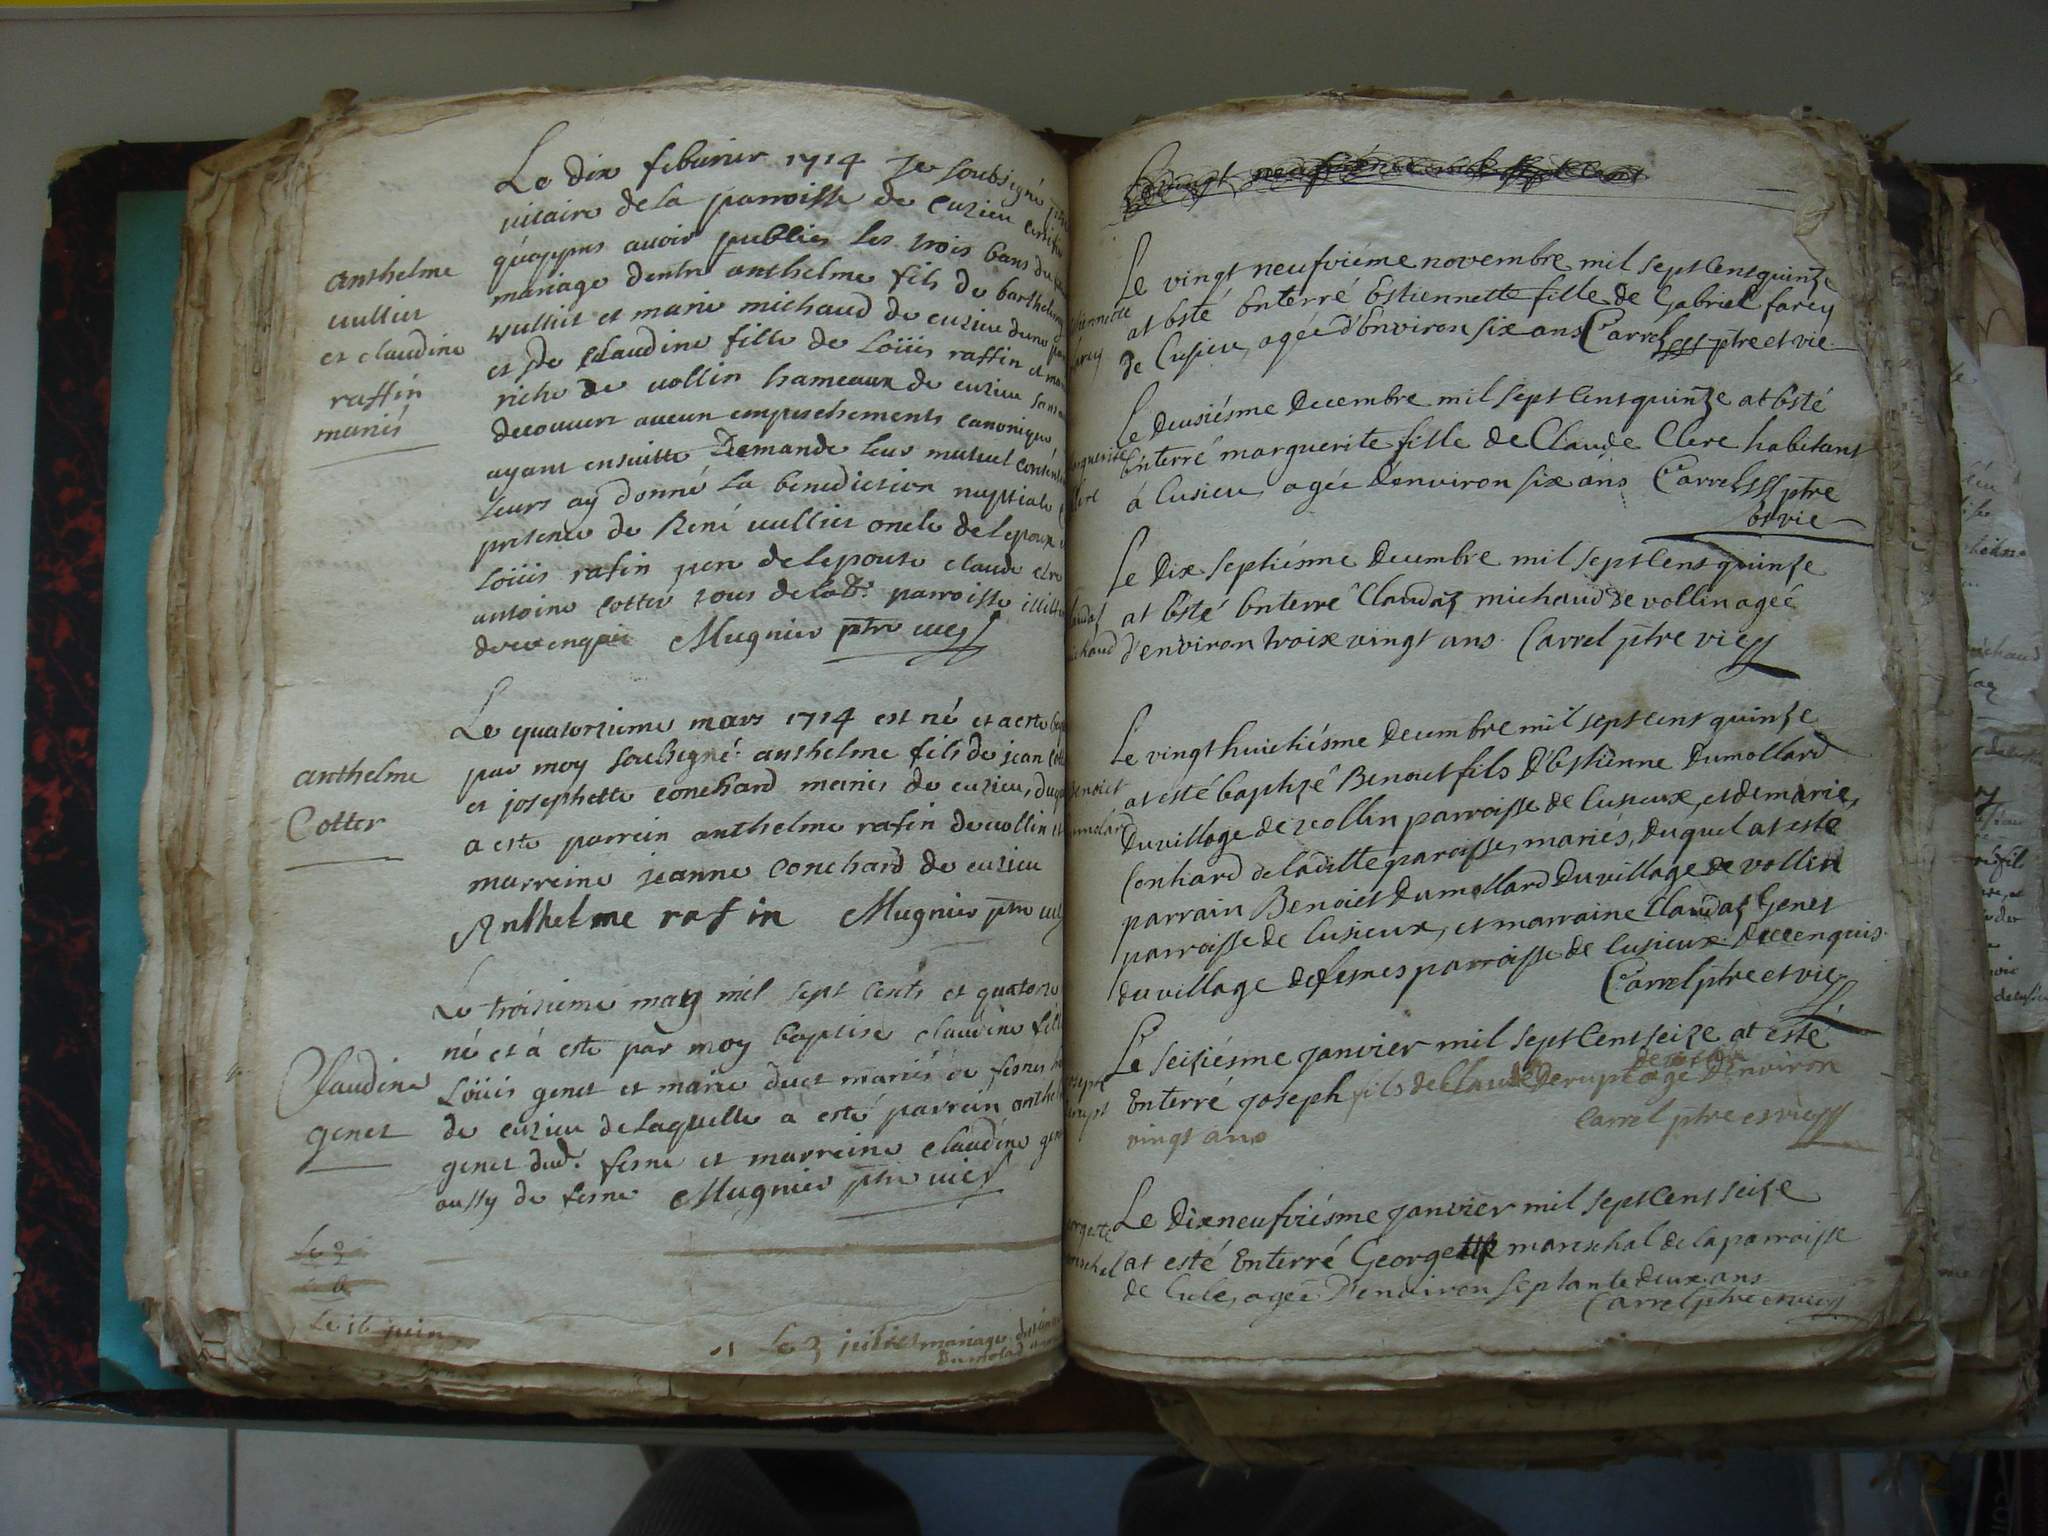 Le dix feburier 1714 Je soubsigné
vicaire de la parroisse de cuzieu certifie
qu'appres avoir publier les trois bans du
mariage dentre anthelme fils de barthelemy
vulliet et marie michaud de cuzieu dune part
et de claudine fille de Loüis raffin et
riche de vollin hameaux de cuzieu sans
decouvert aucun empeschements canonique
ayant ensuitte Demande leur mutuel
Leurs ay donné La benediction nuptiale
presence de René vulliet oncle de Lepoux
Loüis rafin pere de lepouse claude
antoine cotter tous de lad.e parroisse
de ce enquis Mugnier ptre vic
anthelme
vulliet
et claudine
raffin
mariés
Le quatorzieme mars 1714 est né et a este
par moy soubsigné anthelme fils de jean
et josephette conchard mariés de cuzieu,
a este parrein anthelme rafin de vollin et
marreine jeanne conchard de cuzieu
Anthelme rafin Mugnier ptre
anthelme
Cotter
Le troisieme may mil sept cents et quatorze
né et à este par moy baptise claudine fille
Loüis genet et marie duct mariés de fesnes
de cuzieu de Laquelle a esté parrein
genet dud. fesne et marreine claudine
aussy de fesne Mugnier ptre vic
Claudine
genet
Le 3
Le 16 juin
Le 3 juillet mariage
Dumolard
Le vingt neufviéme novembre mil sept Cens quinze
at esté Enterré Estiennette fille de Gabriel farey
de Cusieu, agée d'Environ six ans Carrel ptre et vic.
Le deusiésme Decembre mil sept Cens quinze at Esté
Enterré marguerite fille de Claude Clere habitant
á Cusieu, agée d'environ six ans Carrel ptre
et vic
Le Dix septiésme Decembre mil sept Cens quinze
at Esté Enterré Claudaz michaud de vollin ageé
d'environ troix vingt ans. Carrel ptre vic
michaud
Le vingt huictiésme Decembre mil sept cens quinze
at esté baptizé Benoict fils D'Estienne Dumollard
Du village de vollin parroisse de Cusieux, et de marie
Conhard de laditte paroisse, mariés, duquel at esté
parrain Benoict Dumollard Du village de vollin
parroisse de Cusieux, et marraine Claudaz Genet
du village de fesnes parroisse de Cusieux. De ce enquis.
Carrel ptre et vic
Benoict
Le seiziésme janvier mil sept Cens seize at esté
Enterré joseph fils de Claude Derupt agé D'environ
vingt ans Carrel ptre et vic
Le Dixneufviésme janvier mil sept Cens seize
at esté Enterré Georgette mareschal de la parroisse
de Cule, agée D'environ septante deux ans
Carrel ptre et vic